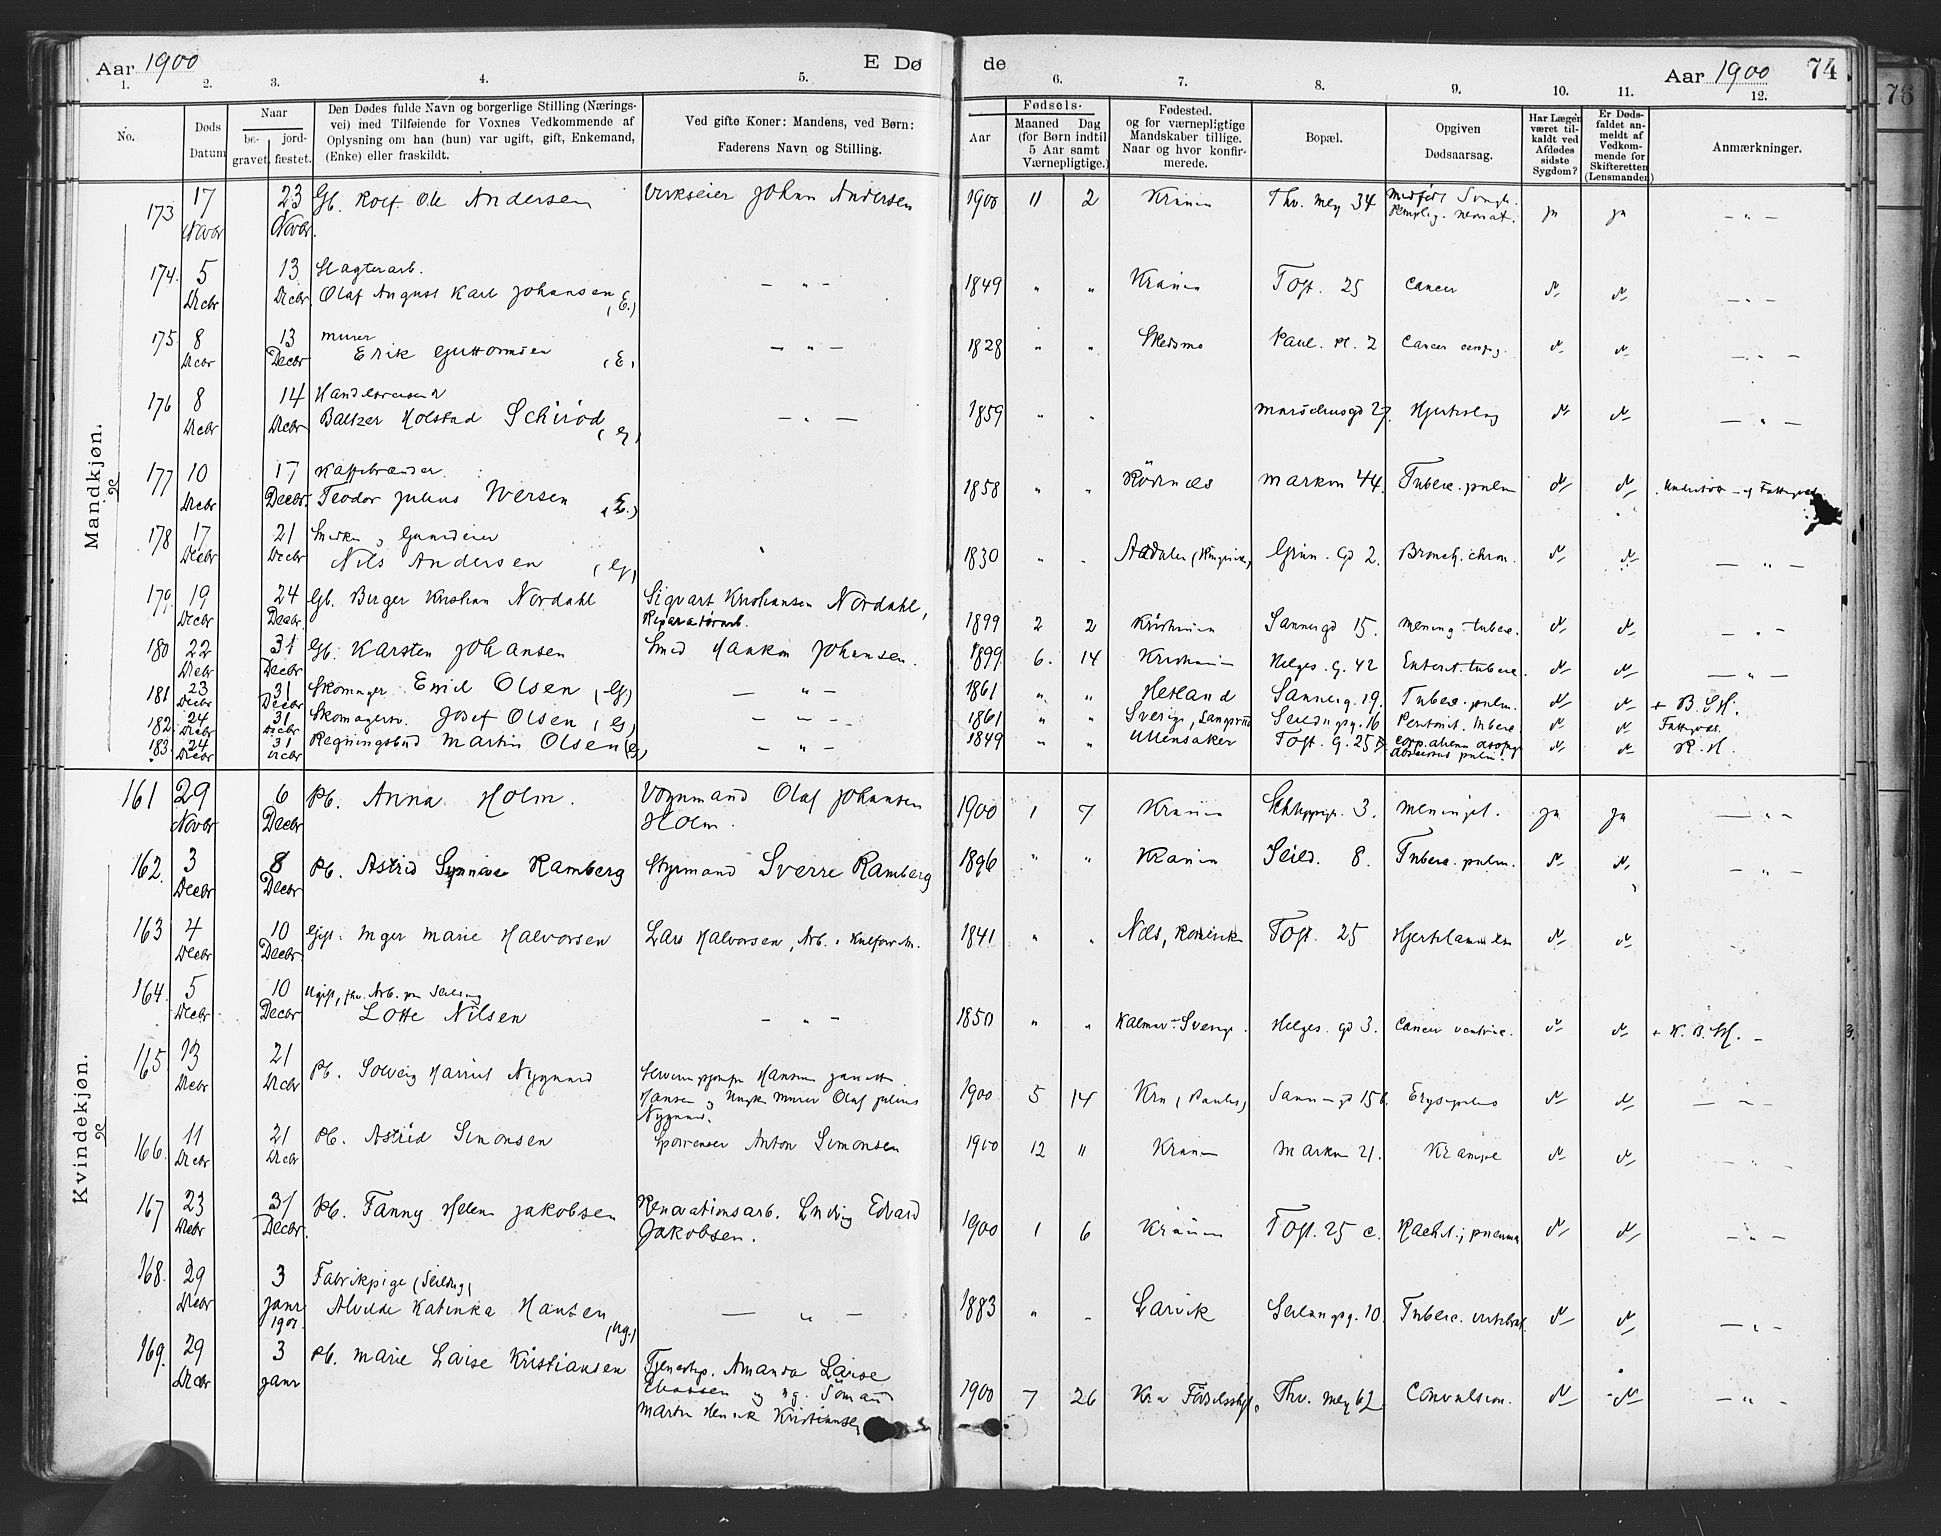 Aar 1900 E Dø de Aar 1900 74
1. 2. 3. 4. 5. 6. 7. 8. 9. 10. 11. 12.
No.
Døds Datum
Naar be- gravet. jord- fæstet.
Den Dødes fulde Navn og borgerlige Stilling (Nærings-
vei) med Tilføiende for Voxnes Vedkommende af
Oplysning om han (hun) var ugift, gift, Enkemand,
(Enke) eller fraskildt.
Ved gifte Koner: Mandens, ved Børn:
Faderens Navn og Stilling.
Fødsels-
Aar Maaned Dag
(for Børn indtil
5 Aar samt
Værnepligtige.)
Fødested.
og for værnepligtige
Mandskaber tillige.
Naar og hvor konfir-
merede.
Bopæl.
Opgiven
Dødsaarsag.
Har Lægen
været til-
kaldt ved
Afdødes
sidste
Sygdom?
Er Døds-
faldet an-
meldt af
Vedkom-
mende for
Skifteretten
(Lensmanden)
Anmærkninger.
Mandkjøn.
173 17 Novbr 23 Novbr. Gb. Rolf Ole Andersen Virkseier Johan Andersen 1900 11 2 Krania Thv. Mey 34 Medfødt ja ja — " —
174. 5 Decbr 13 Decbr Slagterarb.
Olaf August Karl Johansen (E.) — " — 1849 " " Krania Toft. 25 Cancer N N — " —
175. 8 Decbr 13 Decbr Murer
Erik Guttormsen (E) — " — 1828 " " Skedsmo Paul. Pl. 2 Cancer N N — " —
176 8 Decbr 14 Decbr Handelsreisend
Baltzer Holstad Schiröd (G) — " — 1859 " " Maridalsgd 27. Hjerteslag N N — " —
177 10 Decbr 17 Decbr. Kaffebrænder
Teodor Julius Iversen (E.) 1858 " " Markvn 44. Tuberc. pulm N N
178 17 Decbr 21 Decbr
Nils Andersen (G) 1830 " " Aadalen (Ringerike) Grün. Gd 2. Bronch. chron. N N — " —
179. 19 Decbr 24 Decbr. Gb. Birger Kristian Nordahl Sigvart Kristiansen Nordahl,
Reparatørarb. 1899 2 2 Kristiania Sannergd 15. Mening. tuberc. N N — " —
180 22 Decbr 31 Decbr Gb. Karsten Johansen Smed Haakon Johansen. 1899 6. 14 Kristiania Helges. G. 42 Enterit. tuberc. N N — " —
181 23 Decbr 31 Decbr Skomager Emil Olsen (G) — " — 1861 " " Hetland Sannerg. 19. Tuberc. pulm. N N + B. SH.
182. 24 Decbr 31 Decbr Skomagersv. Josef Olsen (G) — " — 1861 " " Sverige, Seildugsg. 16 Peritonit. tuberc N N Fattigvæs.
183. 24 Decbr 31 Decbr Regningsbud Martin Olsen (G) — " — 1849 " " Ullensaker Toft. G. 25 B Corp. alienum
abscessus pulm. N N R. H.
Kvindekjøn.
161 29 Novbr 6 Decbr Pb. Anna Holm. Vognmand Olaf Johansen
Holm. 1900 1 7 Krania 3. Meningit. ja ja — " —
162. 3 Decbr 8 Decbr Pb. Astrid Synnøve Ramberg Styrmand Sverre Ramberg 1896 " " Krania Seild. 8. Tuberc. pulm. N N — " —
163 4 Decbr 10 Decbr Gift. Inger Marie Halvorsen Lars Halvorsen, Arb. 1841 " " Næs, Romerik Toft. 25 Hjertelammelse N N
164. 5 Decbr 10 Decbr Ugift, fhv. Arb. pa Seildug
Lotte Nilsen — " — 1850 " " Kalmar - Sverige. Helges. gd 3. Cancer ventric. N N + K. B. SH. —
165 13 Decbr 21 Decbr Pb. Solveig Harriet Nygaard
Hansen og Ungk. Murer Olaf Julius
Nygaard. 1900 5 14 Kra (Paulus) Sannergd 15b. Erysipelas N N — " —
166. 11 Decbr 21 Decbr Pb. Astrid Simonsen Anton Simonsen 1900 12 " Krania Markvn 21. Krampe N N
167 23 Decbr 31 Decbr. Pb. Fanny Helene Jakobsen Renovationsarb. Ludvig Edvard
Jakobsen. 1900 1 6 Krania Toft. 25 c. Rachit.; pneumon N N — " —
168. 29 Decbr 3 Janr 1901 Fabrikpige (Seildug)
Alvilde Katinka Hansen (ug.) — " — 1883 " " Larvik Seildugsg. 10. Tuberc. vertebral. N N — " —
169. 29 Decbr 3 Janr Pb. Marie Lovise Kristiansen Tjenestep. Amanda Lovise
og ug. Sømand
Martin Henrik Kristiansen 1900 7 26 Kra Fødselsstift. Thv. Mey 62. Convulsion. N N — " —
76